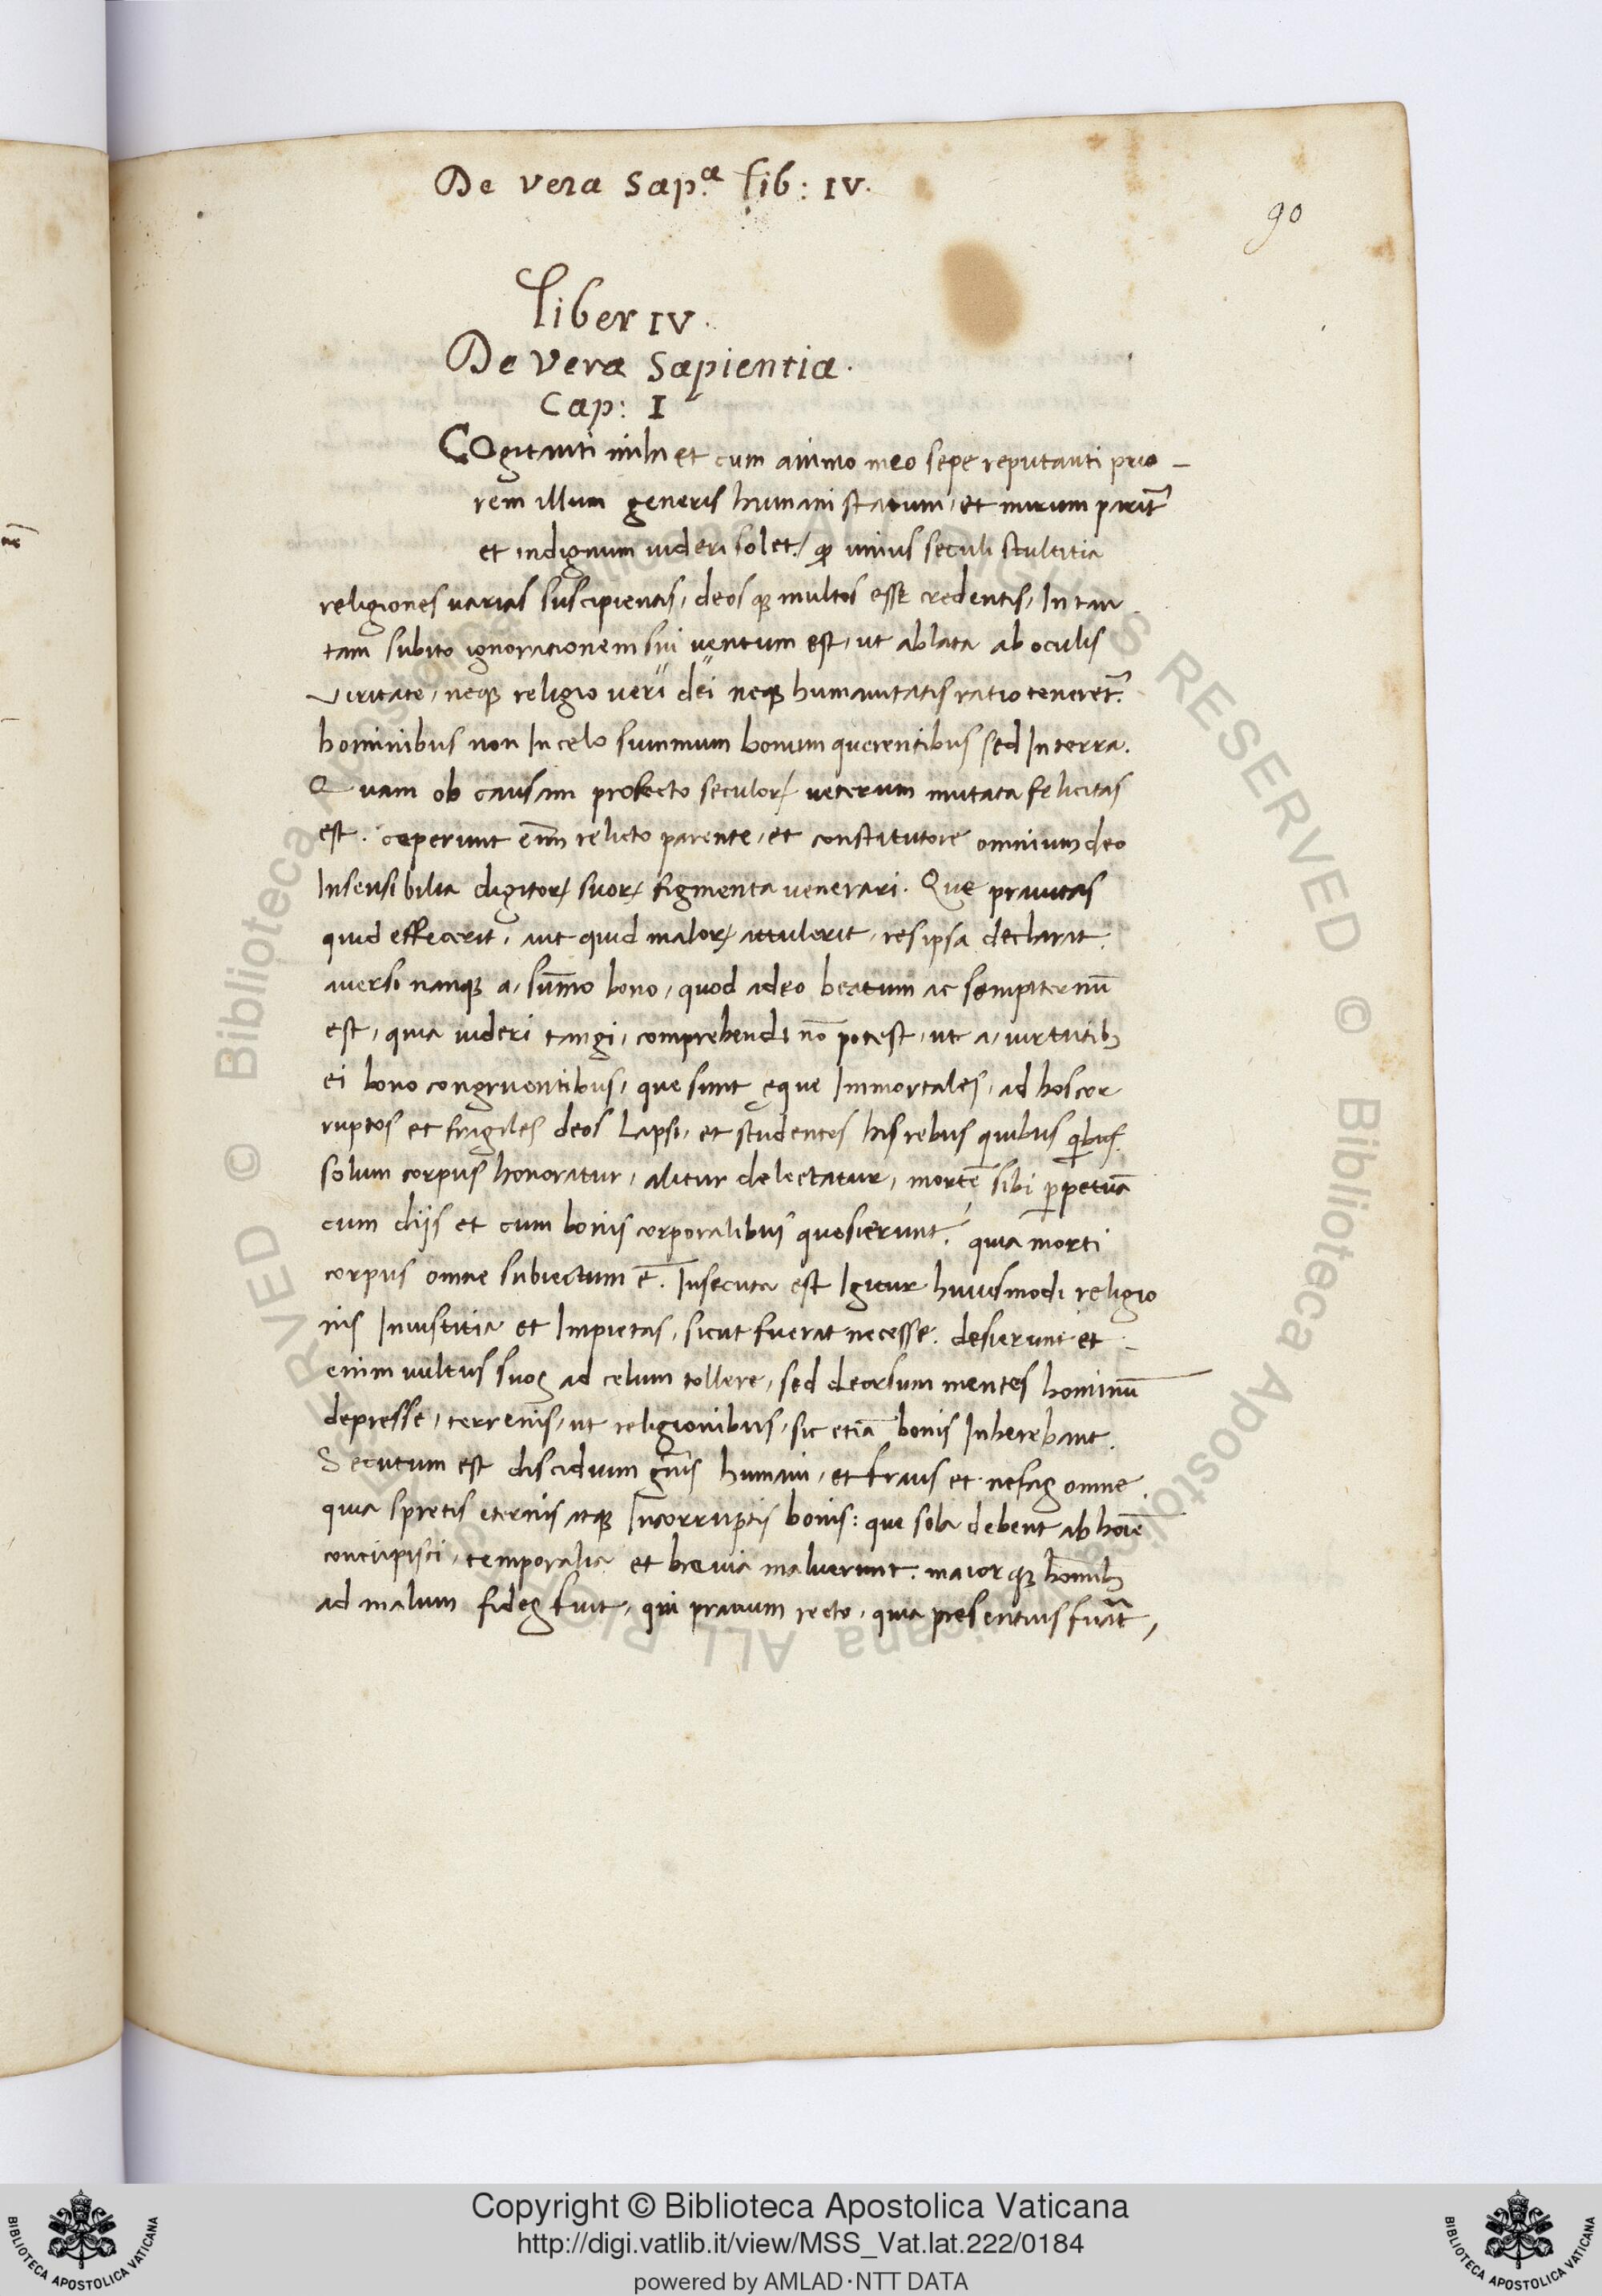 De vera Sap.ª lib: IV.
90
Liber IV.
De vera Sapientia.
Cap: I
COgitanti mihi et cum animo meo sepe reputanti prio-
rem illum generis humani statum, et mirum parit̃
et indignum uideri solet, ꝙ unius seculi stultitia
religiones uarias suscipientis, deosqꝫ multos esse credentis, In tan
tam subito ignorationem sui uentum est, ut ablata ab oculis
ueritate, neqꝫ religio ueri dei neqꝫ humanitatis ratio teneret̃.
hominibus non In celo summum bonum querentibus sed In terra.
Quam ob causam profecto seculoꝝ ueterum mutata felicitas
est. ceperunt eim̃ relicto parente, et constitutore omnium deo
Insensibilia digitoꝝ suoꝝ figmenta uenerari. Que prauitas
quid effecerit, aut quid maloꝝ attulerit, res ipsa declarat.
auersi nanqꝫ a, sum̃o bono, quod adeo beatum ac sempiternũ
est, quia uideri tangi, comprehendi nõ potest, ut a, uirtutibꝫ
ei bono congruentibus, que sunt ęque Immortales, ad hos cor
ruptos et fragiles deos lapsi, et studentes his rebus quibus qibus
solum corpus honoratur, alitur delectatur, mortẽ sibi ꝑpetuã
cum diis et cum bonis corporalibus quesierunt. quia morti
corpus omne subiectum ẽ. Insecuta est Igitur huiusmodi religio
nis Iniustitia et Impietas, sicut fuerat necesse. desierunt et-
enim uultus suos ad celum tollere, sed deorsum mentes hominũ
depresse, terrenis, ut religionibus, sic etiã bonis Inherebant.
Secutum est discidium gñis humani, et fraus et nefas omne.
quia spretis eternis atqꝫ Incorruptis bonis: que sola debent ab hoiẽ
concupisci, temporalia et breuia maluerunt. maiorqꝫ homĩbꝫ
ad malum fides fuit, qui prauum recto, quia presentius fuãt,
Copyright © Biblioteca Apostolica Vaticana
http://digi.vatlib.it/view/MSS_Vat.lat.222/0184
powered by AMLAD·NTT DATA
BIBLIOTECA APOSTOLICA VATICANA
BIBLIOTECA APOSTOLICA VATICANA